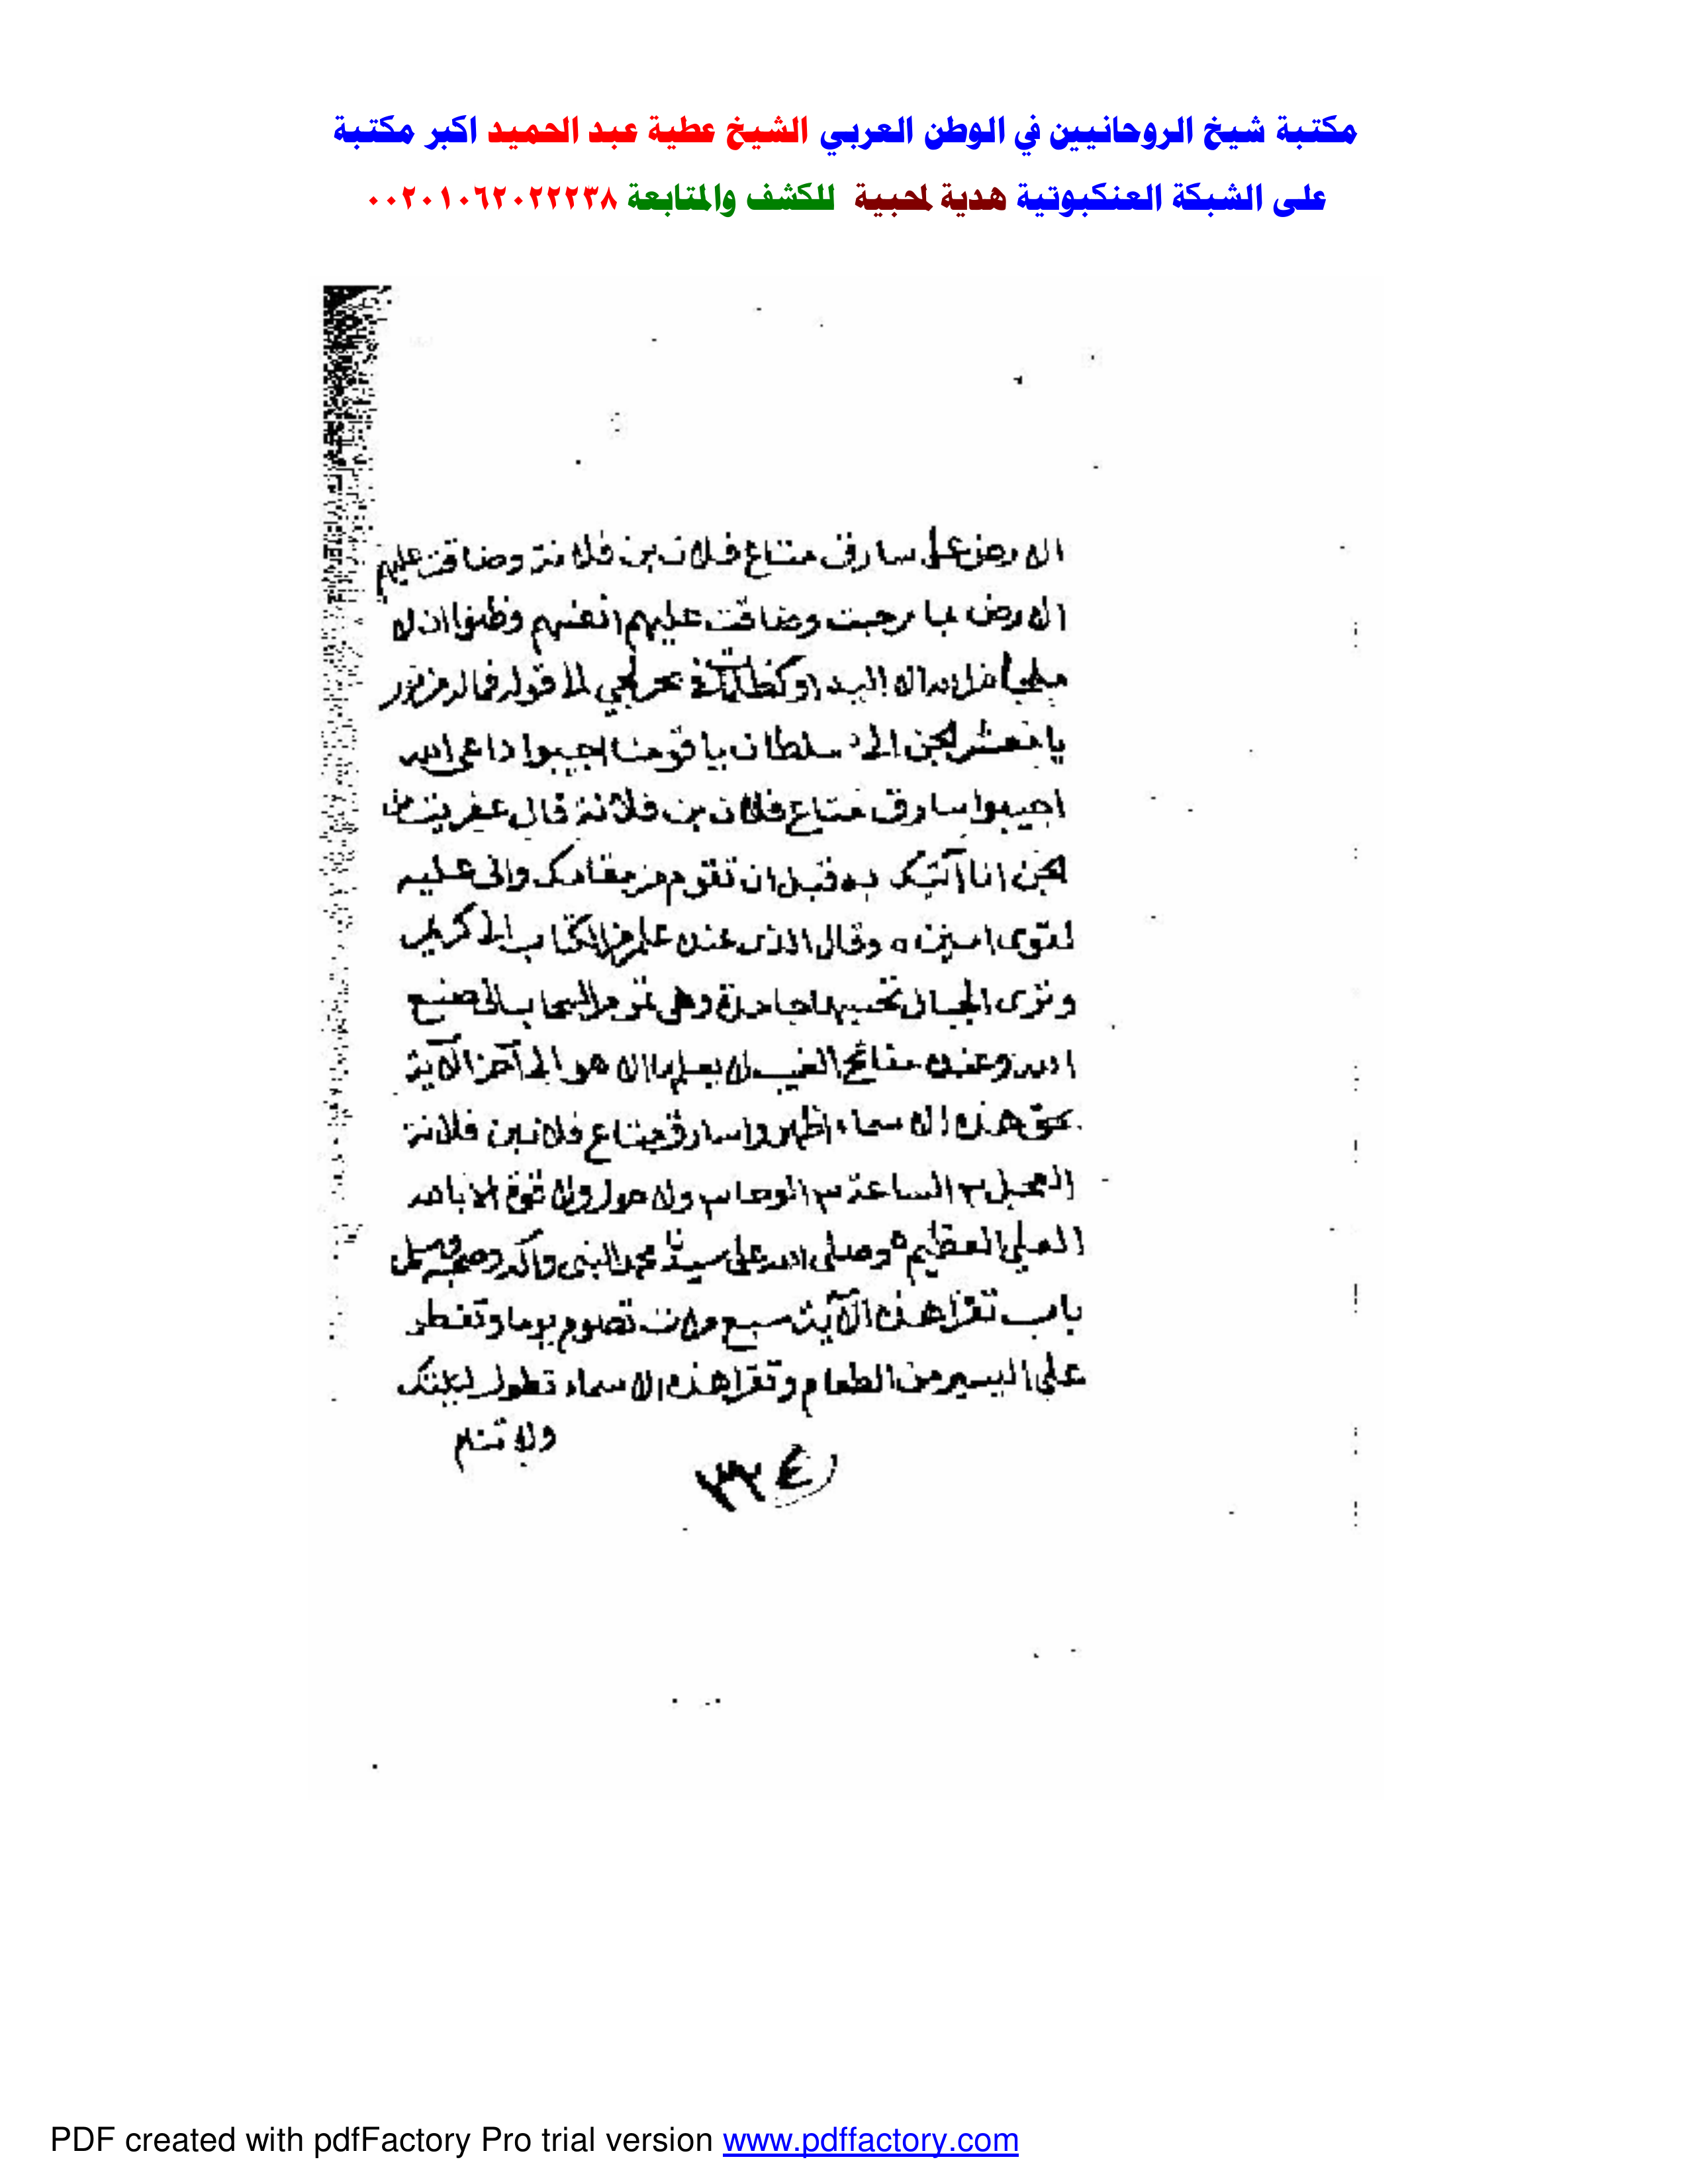 مكتبة شيخ الروحانيين في الوطن العربي الشيخ عطية عبد الحميد اكبر مكتبة
على الشبكة العنكبوتية هدية لمحبيه للكشف والمتابعة ٠٠٢٠١٠٦٢٠٢٢٢٣٨
الارض على سارق متاع فلان بن فلانة وضاقت عليهم
الارض بما رحبت وضاقت عليهم انفسهم وظنوا ان لا
ملجأ من الله الا اليه او كظلمات في بحر لجي الى قوله فما له من نور
يا معشر الجن الى سلطان يا قومنا اجيبوا داعي الله
اجيبوا سارق متاع فلان بن فلانة قال عفريت من
الجن انا آتيك به قبل ان تقوم من مقامك واني عليه
لقوي امين ه وقال الذي عنده علم من الكتاب الى كريم
وترى الجبال تحسبها جامدة وهي تمر مر السحاب الى صنع
الله وعنده مفاتح الغيب لا يعلمها الا هو الى آخر الآية
بحق هذه الاسماء اظهروا سارق متاع فلان بن فلانة
العجل ٣ الساعة ٣ الوحا ٣ ولا حول ولا قوة الا بالله
العلي العظيم ه وصلى الله على سيدنا محمد النبي وآله وصحبه وسلم
باب تقرا هذه الآية سبع مرات تصوم يوما وتفطر
على اليسير من الطعام وتقرا هذه الاسماء تطول ليلتك
ولا تنم
٣٢٤
PDF created with pdfFactory Pro trial version www.pdffactory.com